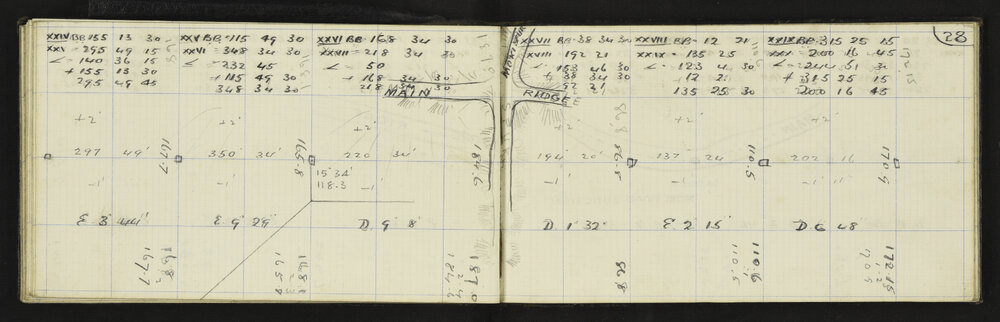 28
XXIV BB 155 13 30
XXV = 295 49 15
∠ = 140 36 15
+ 155 13 30
295 49 45
XXV BB 115 49 30
XXVI = 348 34 30
∠ = 232 45
+ 115 49 30
348 34 30
XXVI BB 168 34 30
XXVII = 218 34 30
∠ = 50
+ 168 34 30
218 34 30
MAIN
XXVII BB 38 34 30
XXVIII 192 21
∠ = 153 46 30
+ 38 34 30
192 21
RIDGE
XXVIII BB 12 21
XXIX = 135 25
∠ = 123 4 30
+ 12 21
135 25 30
XXIX BB 315 25 15
XXX = 200 16 45
∠ = 244 51 30
+ 315 25 15
200 16 45
+2' +2' +2' +2 +2' +2'
297 49' 167.7
350 34' 165.8
220 34' 184.6
194° 20'
137° 24 110.5
202 16 170.9
15°34'
118.3
-1' -1' -1' -1' -1' -1'
E 3° 44'
E 9° 29'
D 9° 8'
D 1° 32'
E 2 15'
D 6 48
168
167.7
187.0
2.4
184.6
110.6
110.5
172.15
1.2
170.9